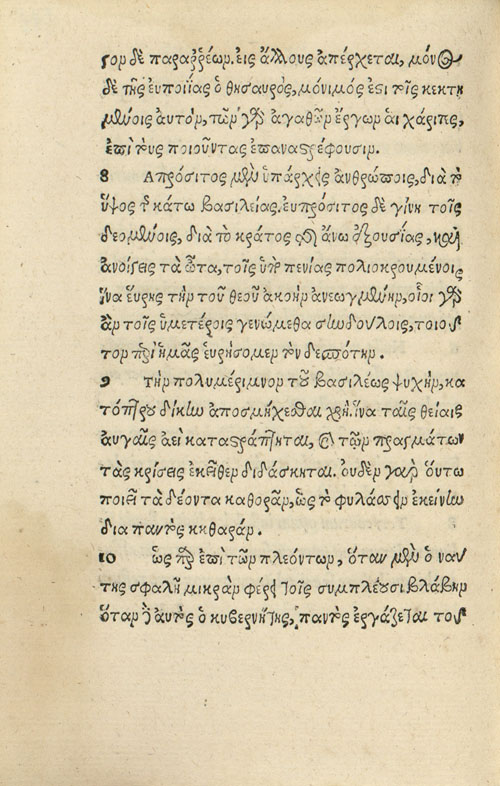 τον δὲ παραῤῥέων. εἰς ἄλλους ἀπέρχεται, μόνος
δὲ τῆς ἐυποιΐας ὁ θησαυρὸς, μόνιμός ἐστι τοῖς κεκτη
μένοις αὐτόν, τῶν γὰρ ἀγαθῶν ἔργων αἱ χάριτες,
ἐπὶ τοὺς ποιοῦντας ἐπαναστρέφουσιν.
8 Απρόσιτος μὲν ὑπάρχεις ἀνθρώποις, διὰ τὸ
ὕψος τῆς κάτω βασιλείας. ἐυπρόσιτος δὲ γίνη τοῖς
δεομένοις, διὰ τὸ κράτος τῆς ἄνω ἐξουσίας, καὶ
ἀνοίγεις τὰ ὦτα, τοῖς ὑπὸ πενίας πολιοκρουμένοις
ἵνα ἕυρης τὴν τοῦ θεοῦ ἀκοὴν ἀνεωγμένην, οἷοι γὰρ
ἂν τοῖς ἡμετέροις γενώμεθα συνδούλοις, τοιοῦ
τον περὶ ἡμᾶς ἑυρήσομεν τὸν δεσπότην.
9 Τὴν πολυμέριμνον τοῦ βασιλέως ψυχὴν, κα
τόπτρου δίκην ἀποσμήχεσθαι χρὴ. ἵνα ταῖς θείαις
αὐγαῖς ἀεὶ καταστράπτηται, καὶ τῶν πραγμάτων
τὰς κρίσεις ἐκεῖθεν διδάσκηται. ὀυδὲν γὰρ ὅυτω
ποιεῖ τὰ δέοντα καθορᾶν, ὡς τὸ φυλάσσειν ἐκείνην
δια παντὸς κηθαράν.
10 ὡς περ ἐπὶ τῶν πλεόντων, ὅταν μὲν ὁ ναύ
της σφαλῆ μικρὰν φέρει τοῖς συμπλέουσι βλάβην
ὅταν δὲ ἀυτὸς ὁ κυβερνήτης, παντὸς ἐργάζεται τοῦ